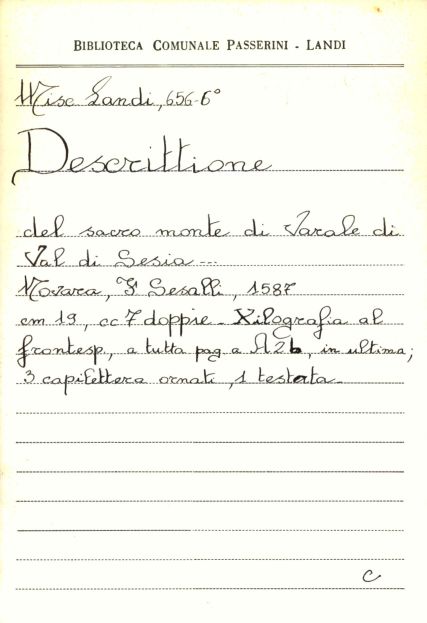 BIBLIOTECA COMUNALE PASSERINI - LANDI
Misc Landi, 656-6°
Descrittione
del sacro monte di Varale di
Val di Sesia ---
Novara, F Sesalli, 1587
cm 19, cc 7 doppie - Xilografia al
frontesp, a tutta pag a A2b, in ultima;
3 capilettera ornati, 1 testata -
C